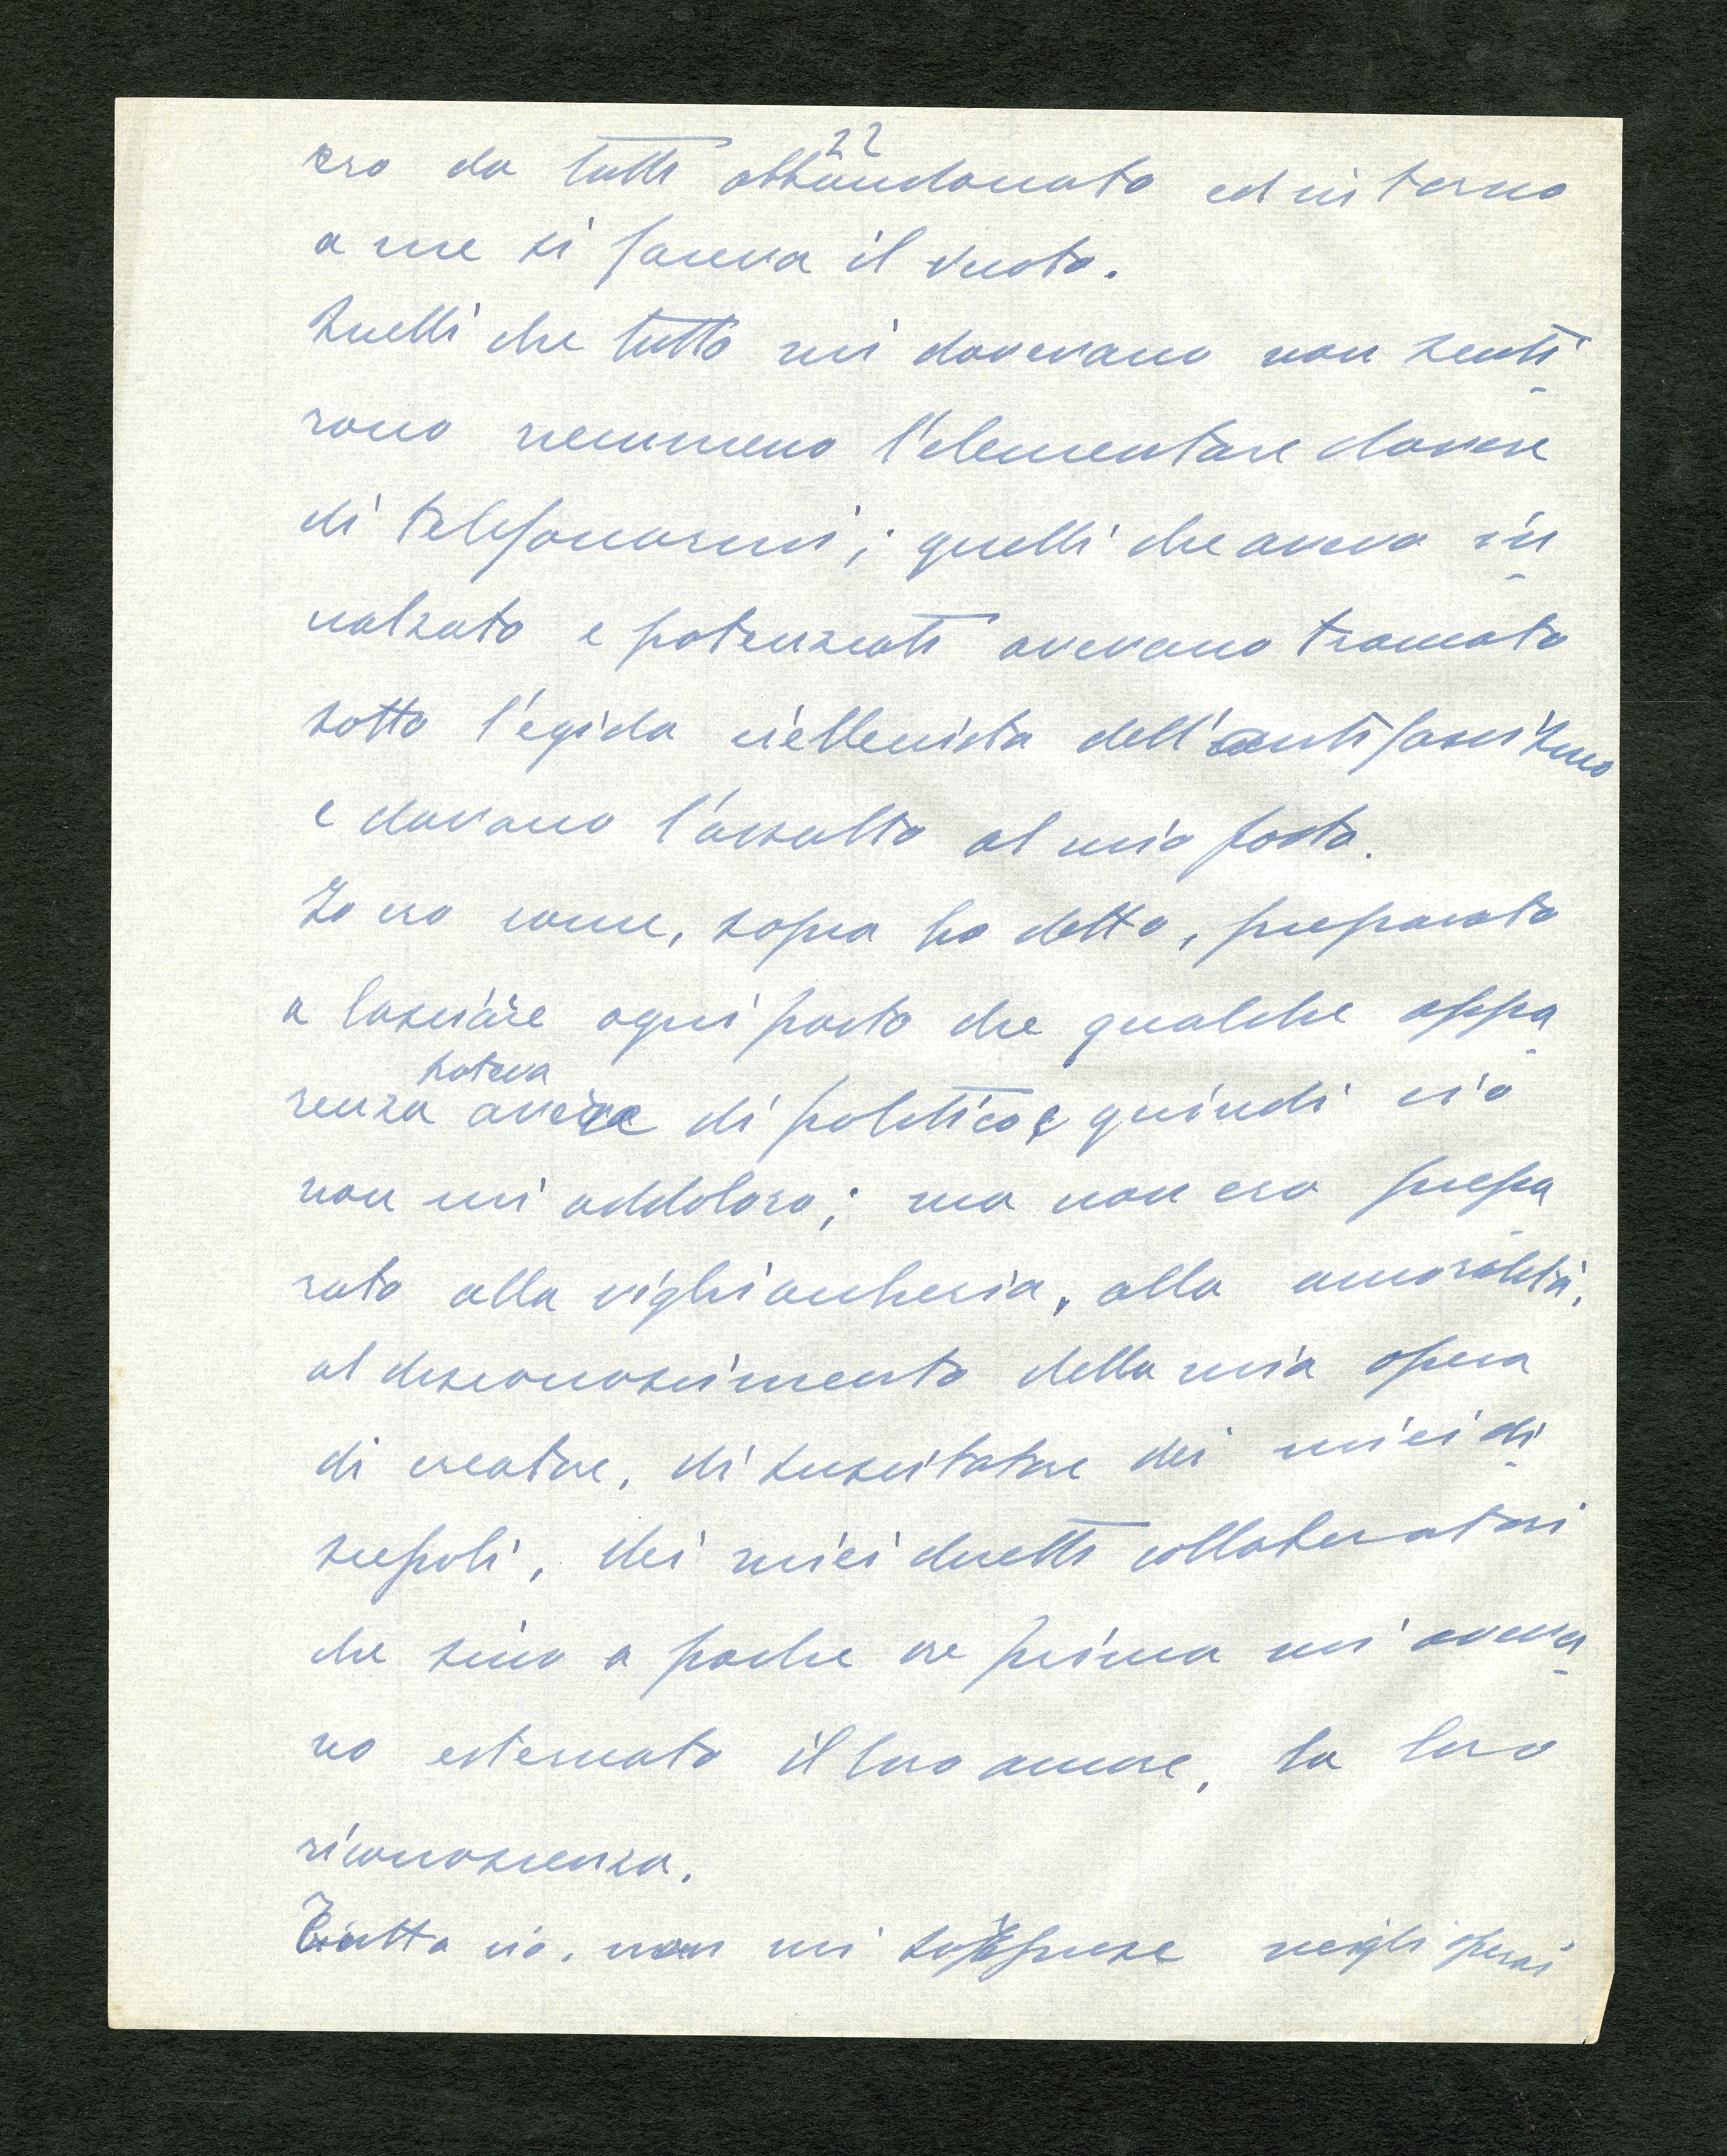 22
ero da tutti abbandonato ed intorno
a me si faceva il vuoto.
Quelli che tutto mi dovevano non senti
rono nemmeno l'elementare dovere
di telefonarmi; quelli che avevo in
nalzato e potenziati avevano tramato
sotto l'egida dell'antifascismo
e davano l'assalto al mio posto.
Io ero come, sopra ho detto, preparato
a lasciare ogni posto che qualche appa
poteva
renza avere di politico e quindi ciò
non mi addolorò; ma non ero prepa
rato alla vigliaccheria, alla amoralità,
al disconoscimento della mia opera
di creatore, di suscitatore dei miei di
scepoli, dei miei diretti collaboratori
che sino a poche ore prima mi aveva
no esternato il loro amore, la loro
riconoscenza.
Tutto ciò, non mi sorprese negli operai